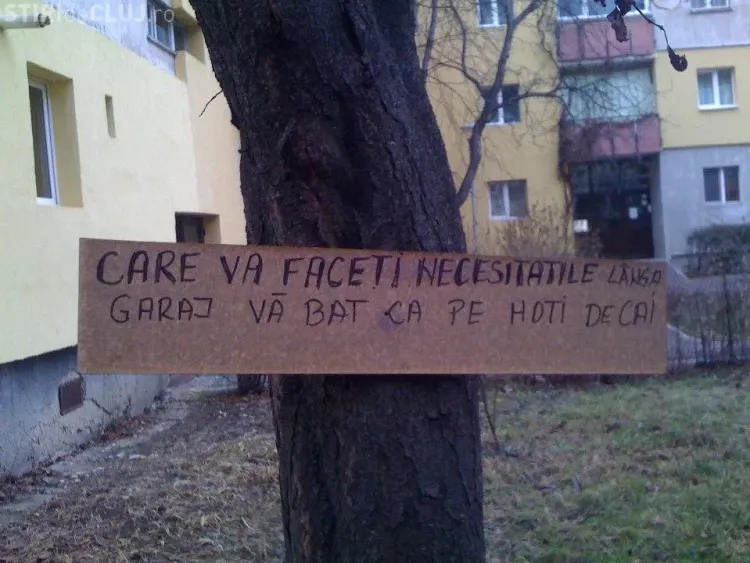 STIRI de CLUJ.ro
CARE VA FACEȚI NECESITATILE LÂNGA
GARAJ VĂ BAT CA PE HOTI DE CAI